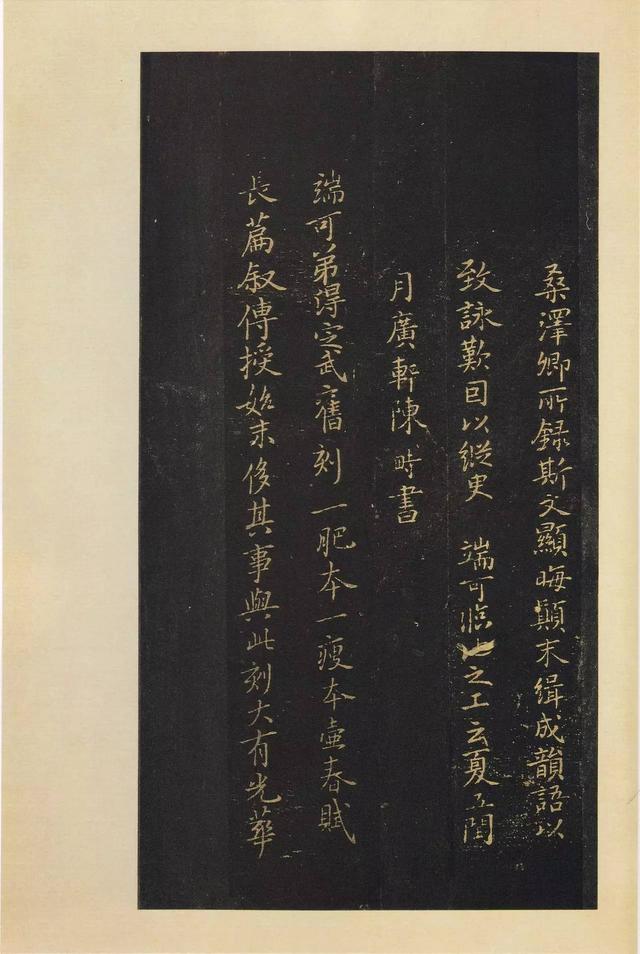 桑澤卿所録斯文顯晦顛末緝成韻語以
致詠歎因以縱臾 端可臨池之工云夏五閏
月廣軒陳時書
端可弟得定武舊刻一肥本一瘦本壷春賦
長篇叙傳授始末侈其事與此刻大有光華